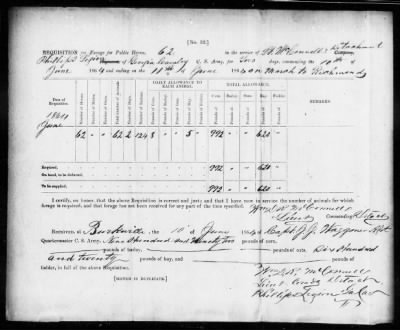 [No. 32.]
REQUISITION for Forage for Public Horses, 62 in the service of W. R. McConnell's Detachment
Phillips Legion Georgia Cavalry C. S. Army, for Two days, commencing the 10th of
June 1864 and ending on the 11th of June 1864 on march to Richmond
DAILY ALLOWANCE TO EACH ANIMAL.
TOTAL ALLOWANCE.
Date of Requisition.
Number of Horses.
Number of Mules.
Number of Oxen.
Total number of Animals.
Number of Days.
Number of Rations.
Pounds of Corn.
Pounds of Barley.
Pounds of Oats.
Pounds of Hay.
Pounds of Fodder.
Corn.
Barley.
Oats.
Hay.
Fodder.
REMARKS
Pounds.
1864
June
62 " " 62 2 124 8 " " 5 " 992 " " 620 "
Required, 992 " " 620 "
On hand, to be deducted,
To be supplied, 992 " " 620 "
I certify, on honor, that the above Requisition is correct and just; and that I have now in service the number of animals for which
forage is required, and that forage has not been received for any part of the time specified.
Wm. R. McConnell
Lieut Commanding Detach
RECEIVED, at Burkville the 10 of June 1864 of Capt J. J.
Quartermaster C. S. Army, Nine Hundred and Ninety two pounds of corn,
pounds of barley, pounds of oats, Six Hundred
and twenty pounds of hay, and pounds of
fodder, in full of the above Requisition.
[SIGNED IN DUPLICATE.]
Wm. R. McConnell
Lieut Comdg Detach
Phillips Legion Ga Cav